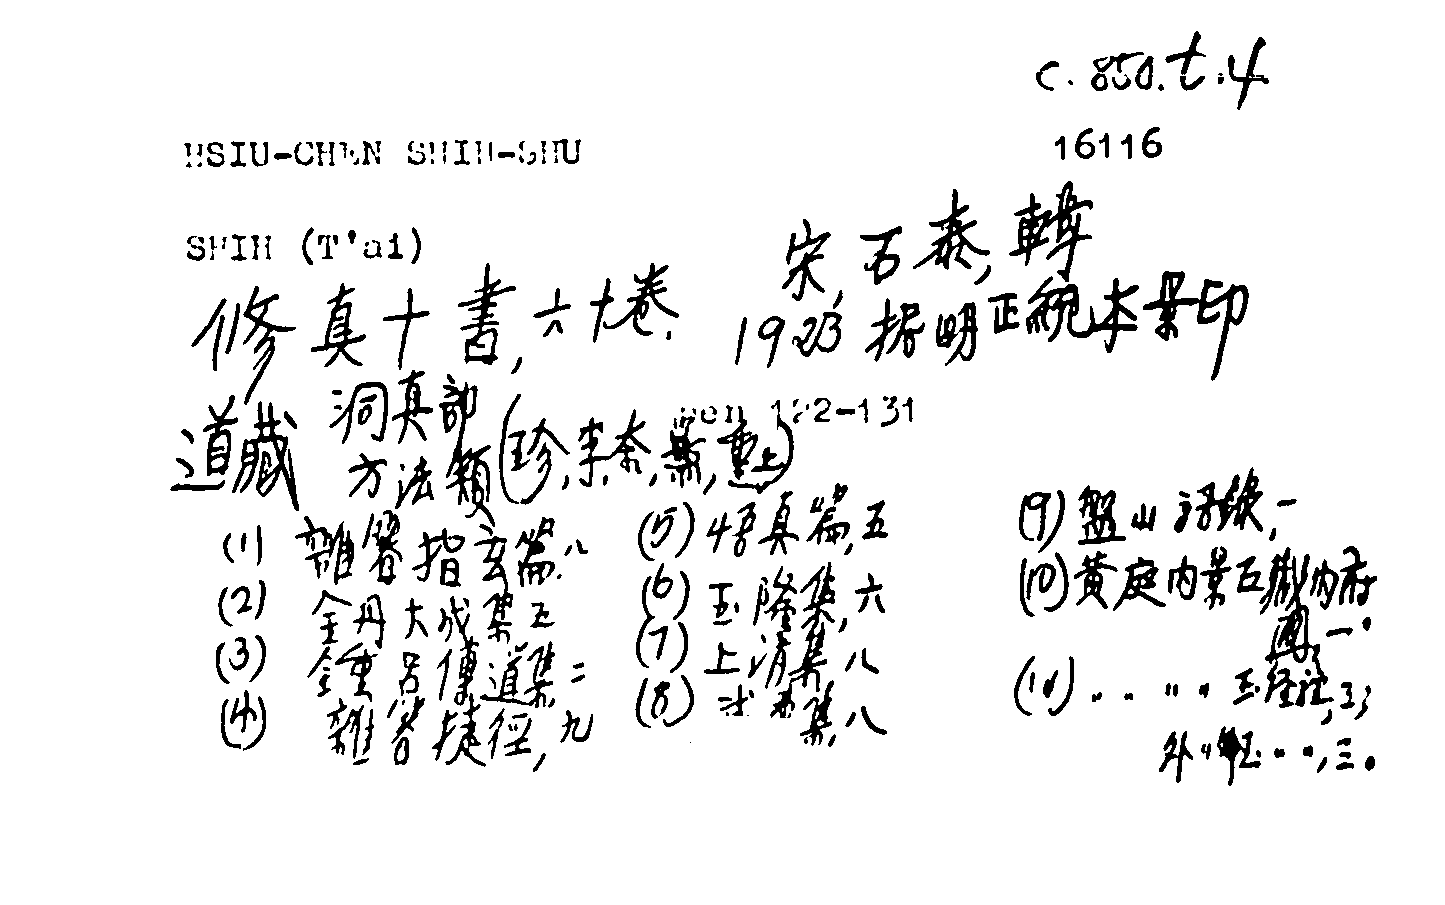 C. 850. t. 4
HSIU-CHEN SHIH-SHU
16116
SHIH (T'ai)
宋, 石泰, 輯
修真十書, 六十卷.
1923 据明正統本景印
道藏 洞真部
方法類 (珍, 李, 柰, 菜, 重上)
pen 122-131
(1) 雜著指玄篇, 八
(2) 金丹大成集 五
(3) 鍾呂傳道集 二
(4) 雜著捷徑, 九
(5) 悟真篇, 五
(6) 玉隆集, 六
(7) 上清集 八
(8) 武夷集, 八
(9) 盤山語錄, 一
(10) 黃庭內景五藏內府
圖, 一.
(11) 〃 〃 〃 〃 玉經註, 三;
外〃玉〃〃, 三.